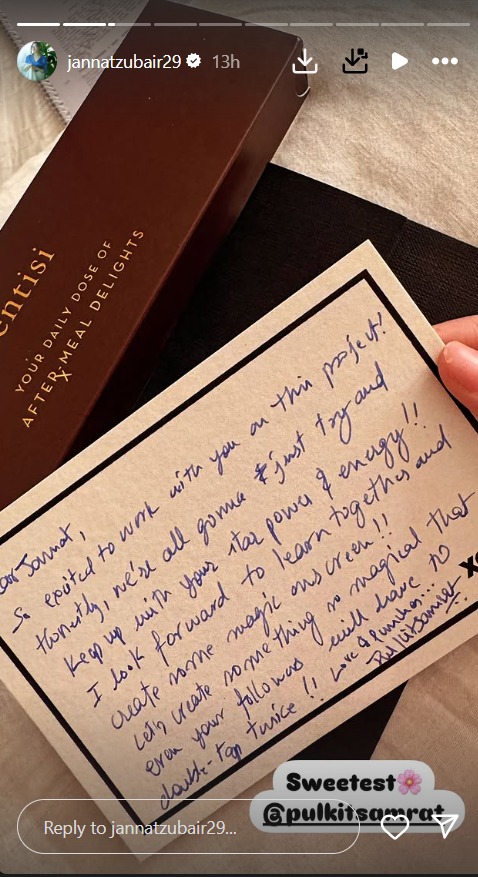 jannatzubair29 13h
entisi
YOUR DAILY DOSE OF
AFTER MEAL DELIGHTS
ear Jannat,
So excited to work with you on this project!
Honestly, we're all gonna just try and
keep up with your star power & energy!!
I look forward to learn together and
create some magic onscreen!!
Let's create something so magical that
even your followers will have to
double-tap twice !! Love & Punches...
Pulkit Samrat
Sweetest🌸
@pulkitsamrat
Reply to jannatzubair29...